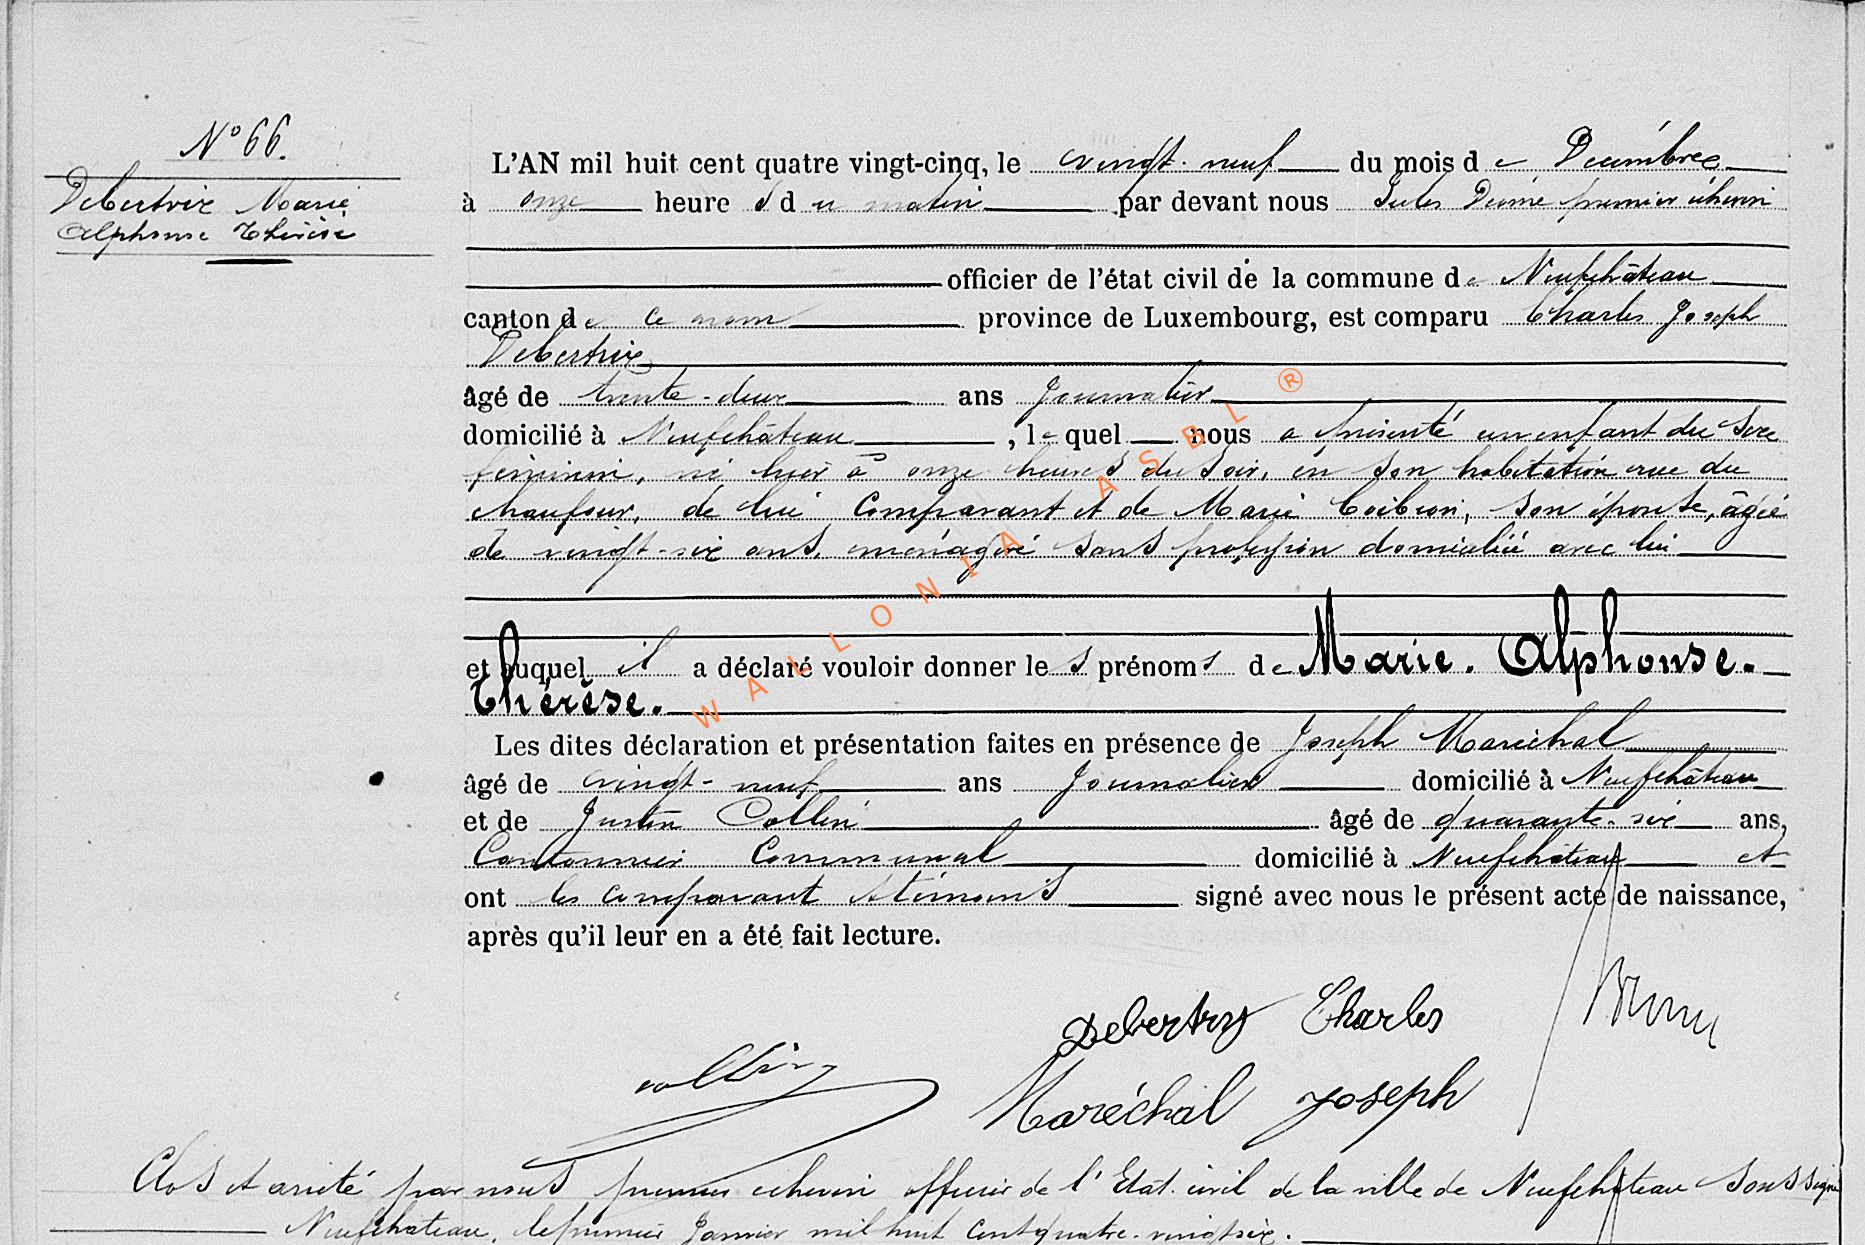 N° 66.
Debertrix Marie
Alphonse Thérèse
L'AN mil huit cent quatre vingt-cinq, le vingt-neuf du mois de Décembre
à onze heures du matin par devant nous Jules premier échevin
officier de l'état civil de la commune de Neufchâteau
canton de ce nom province de Luxembourg, est comparu Charles Joseph
Debertrix
âgé de trente-deux ans Journalier
domicilié à Neufchâteau, lequel nous a présenté un enfant du sexe
féminin, né hier à onze heures du soir, en son habitation rue du
chaufour, de lui Comparant et de Marie Coibion, son épouse, âgée
de vingt-six ans, ménagère sans profession domiciliée avec lui
et auquel il a déclaré vouloir donner les prénoms de Marie. Alphonse.
Thérèse.
Les dites déclaration et présentation faites en présence de Joseph Maréchal
âgé de vingt-neuf ans Journalier domicilié à Neufchâteau
et de Justin Collin âgé de quarante-six ans,
Cantonnier Communal domicilié à Neufchâteau et
ont les comparant et témoins signé avec nous le présent acte de naissance,
après qu'il leur en a été fait lecture.
Debertry Charles
Collin
Maréchal Joseph
Clos et arrêté par nous premier échevin officier de l'Etat-civil de la ville de Neufchâteau soussigné
Neufchâteau, le premier Janvier mil huit cent quatre-vingt six.
WALLONIA ASBL ®